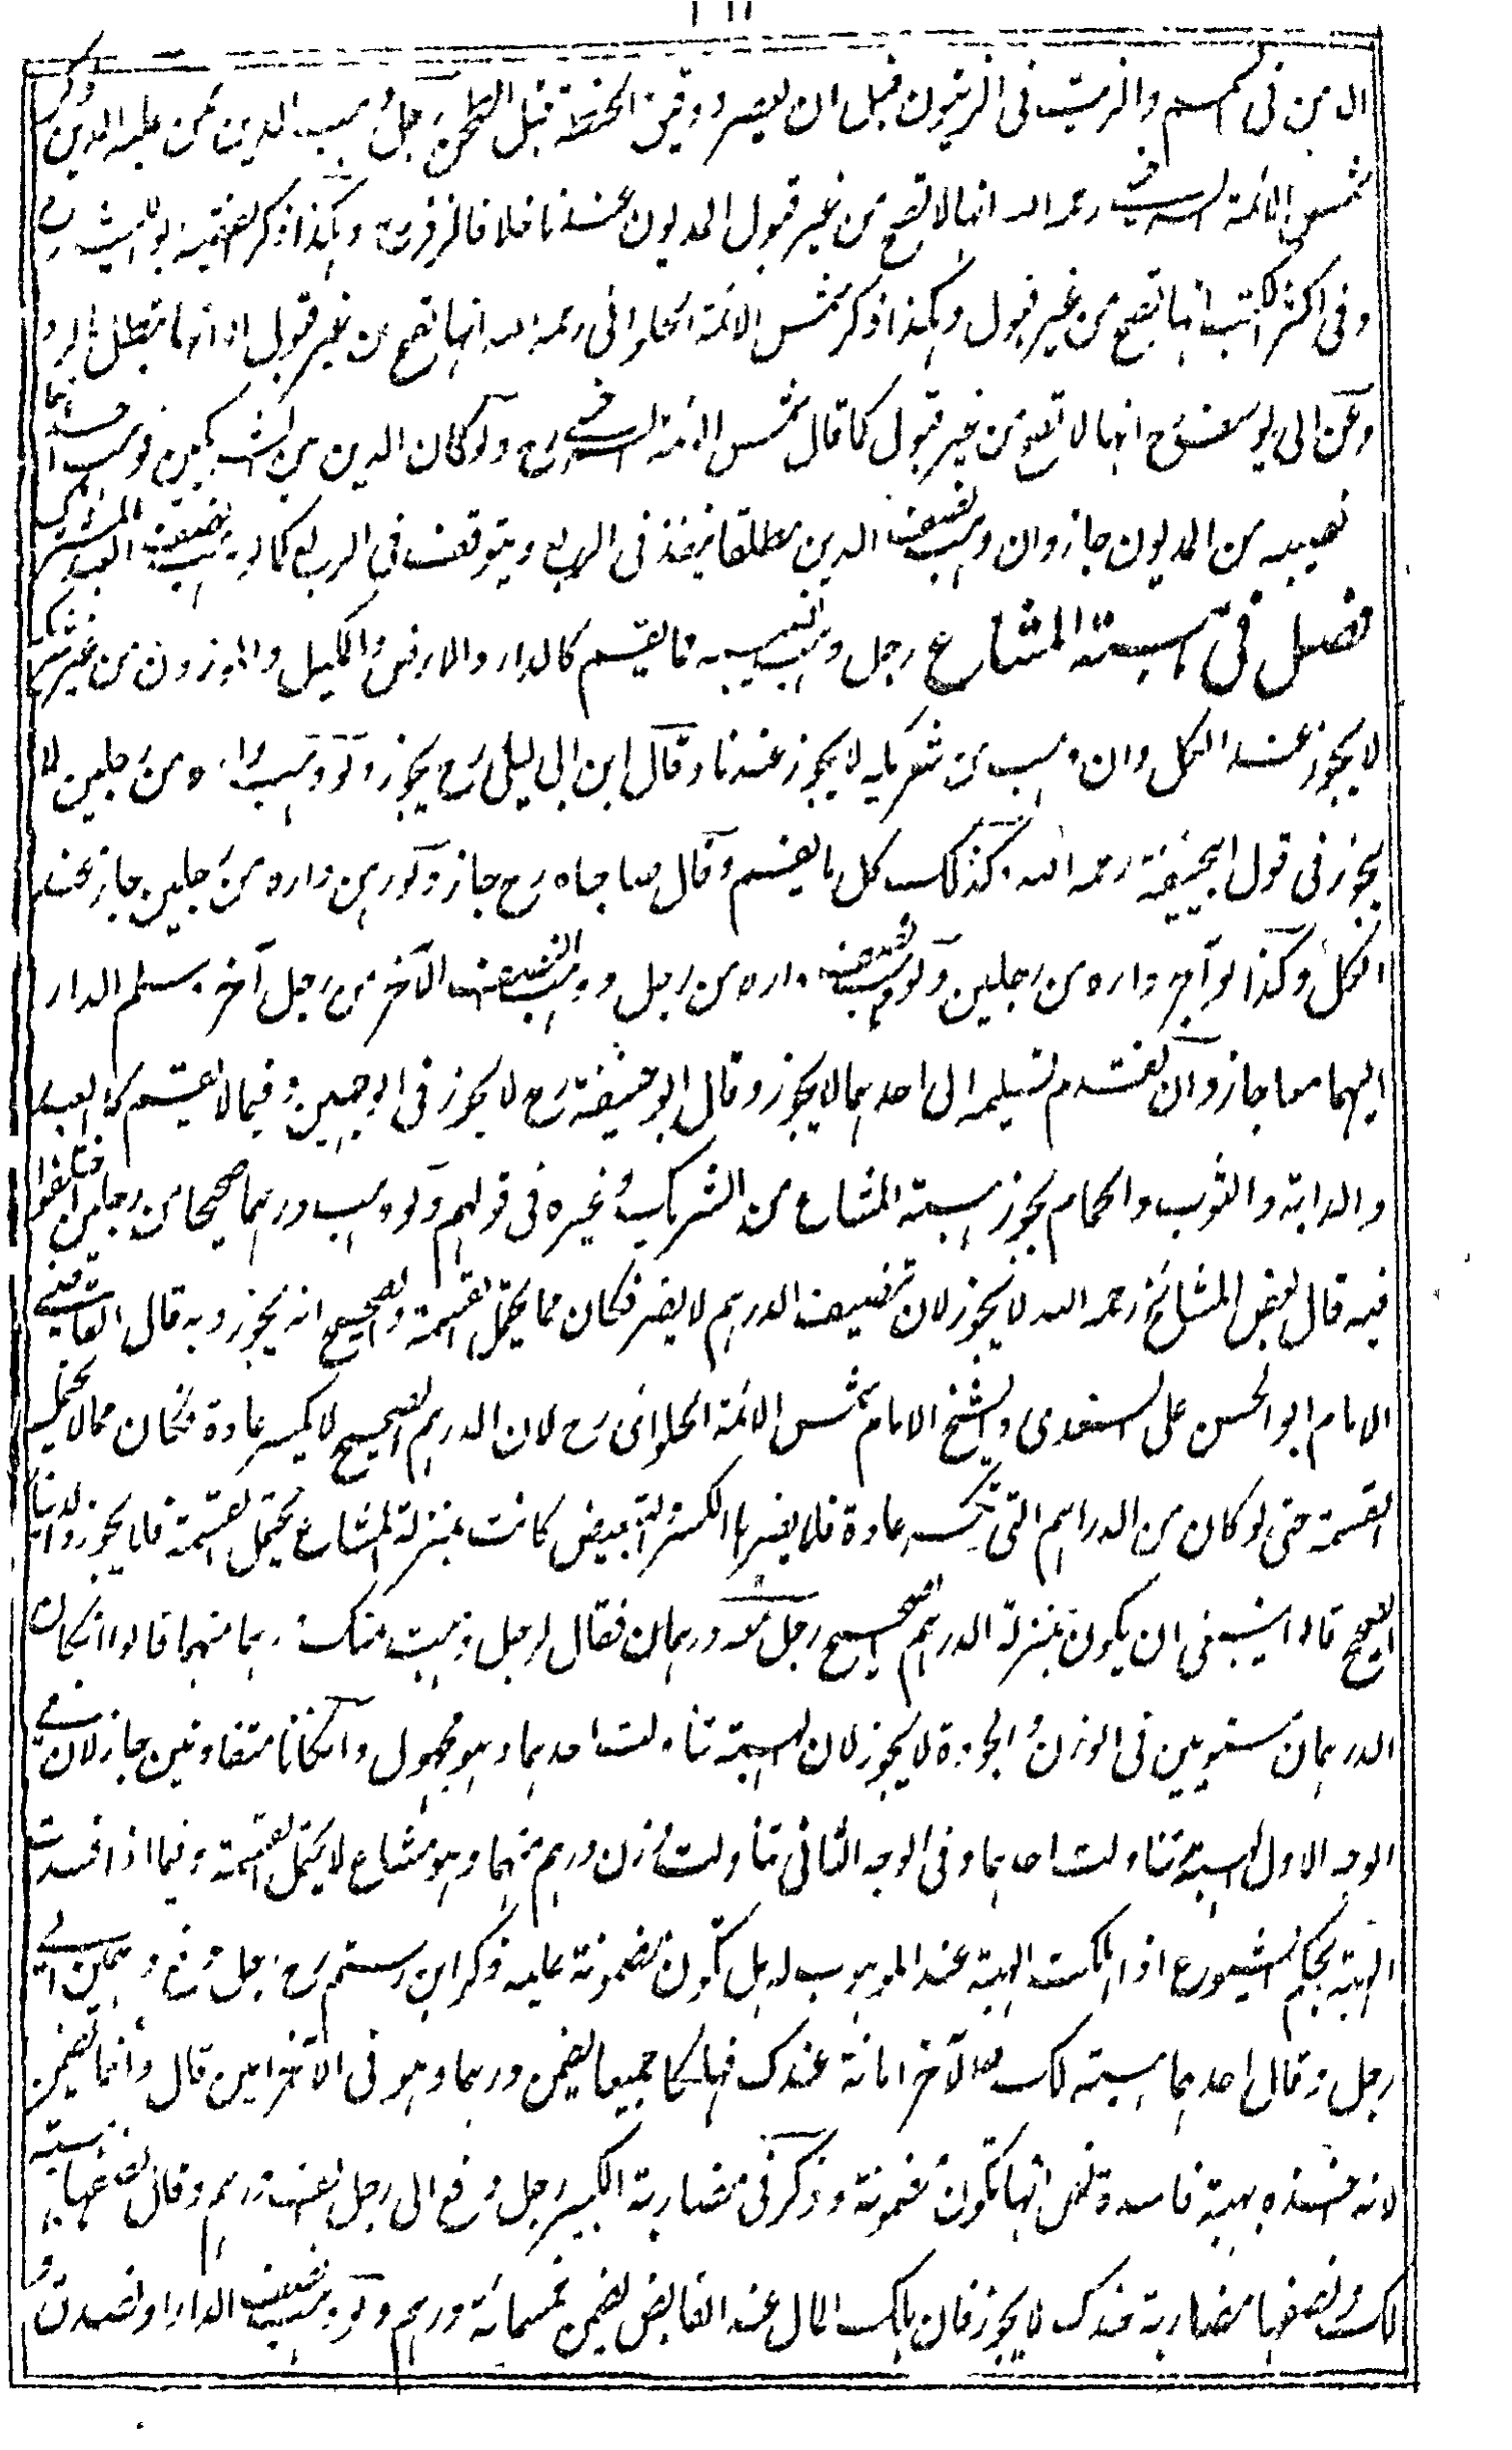 الدهن في السمسم والزيت في الزيتون قبل ان يعصر ودقيق الحنطة قبل الطحن رجل وهب الدين ممن عليه الدين ذكر
شمس الائمة السرخسي رحمه الله انها لا تصح من غير قبول المديون عندنا خلافا لزفر رح وهكذا ذكر الفقيه ابو الليث رح
وفي اكثر الكتب انها تصح من غير قبول وهكذا ذكر شمس الائمة الحلواني رحمه الله انها تصح من غير قبول الا انها تبطل بالرد
وعن ابي يوسف رح انها لا تصح من غير قبول كما قال شمس الائمة السرخسي رح ولو كان الدين بين الشريكين فوهب احدهما
نصيبه من المديون جاز وان وهب نصف الدين مطلقا ينفذ في الربع ويتوقف في الربع كما لو وهب نصف العبد المشترك
فصل في هبة المشاع رجل وهب نصيبه مما يقسم كالدار والارض والمكيل والموزون من غير شريكه
لا يجوز عند الكل وان وهب من شريكه لا يجوز عندنا وقال ابن ابي ليلى رح يجوز ولو وهب داره من رجلين لا
يجوز في قول ابيحنيفة رحمه الله وكذلك كل ما يقسم وقال صاحباه رح جاز ولو رهن داره من رجلين جاز عند
الكل وكذا لو آجر داره من رجلين ولو وهب نصف داره من رجل ووهب النصف الآخر من رجل آخر وسلم الدار
اليهما معا جاز وان تقدم تسليمه الى احدهما لا يجوز وقال ابو حنيفة رح لا يجوز في الوجهين وفيما لا يقسم كالعبد
والدابة والثوب والحمام يجوز هبة المشاع من الشريك وغيره في قولهم ولو وهب درهما صحيحا من رجلين اختلفوا
فيه قال بعض المشائخ رحمه الله لا يجوز لان تنصيف الدرهم لا يضر فكان مما يحتمل القسمة والصحيح انه يجوز وبه قال القاضي
الامام ابو الحسن علي السغدي والشيخ الامام شمس الائمة الحلواني رح لان الدرهم الصحيح لا يكسر عادة فكان مما لا يحتمل
القسمة حتى لو كان من الدراهم التي تكسر عادة فلا يضرها الكسر والتبعيض كانت بمنزلة المشاع يحتمل القسمة فلا يجوز والدينار
الصحيح قالوا ينبغي ان يكون بمنزلة الدرهم الصحيح رجل معه درهمان فقال لرجل وهبت منك درهما منهما قالوا انكان
الدرهمان مستويين في الوزن والجودة لا يجوز لان الهبة تناولت احدهما وهو مجهول وانكانا متفاوتين جاز لان في
الوجه الاول الهبة تناولت احدهما وفي الوجه الثاني تناولت وزن درهم منهما وهو مشاع لا يحتمل القسمة وفيما اذا فسدت
الهبة بحكم الشيوع اذا هلكت الهبة عند الموهوب له هل تكون مضمونة عليه ذكر ابن رستم رح رجل دفع درهمين الى
رجل وقال احدهما هبة لك والآخر امانة عندك فهلكا جميعا يضمن درهما وهو في الآخر امين قال وانما يضمن
لانه قبضه بهبة فاسدة نص انها تكون مضمونة وذكر في مضاربة الكبير رجل دفع الى رجل الف درهم وقال نصفها هبة
لك ونصفها مضاربة عندك لا يجوز فان هلك المال عند القابض يضمن خمسمائة درهم ولو وهب نصف الدار او تصدق و